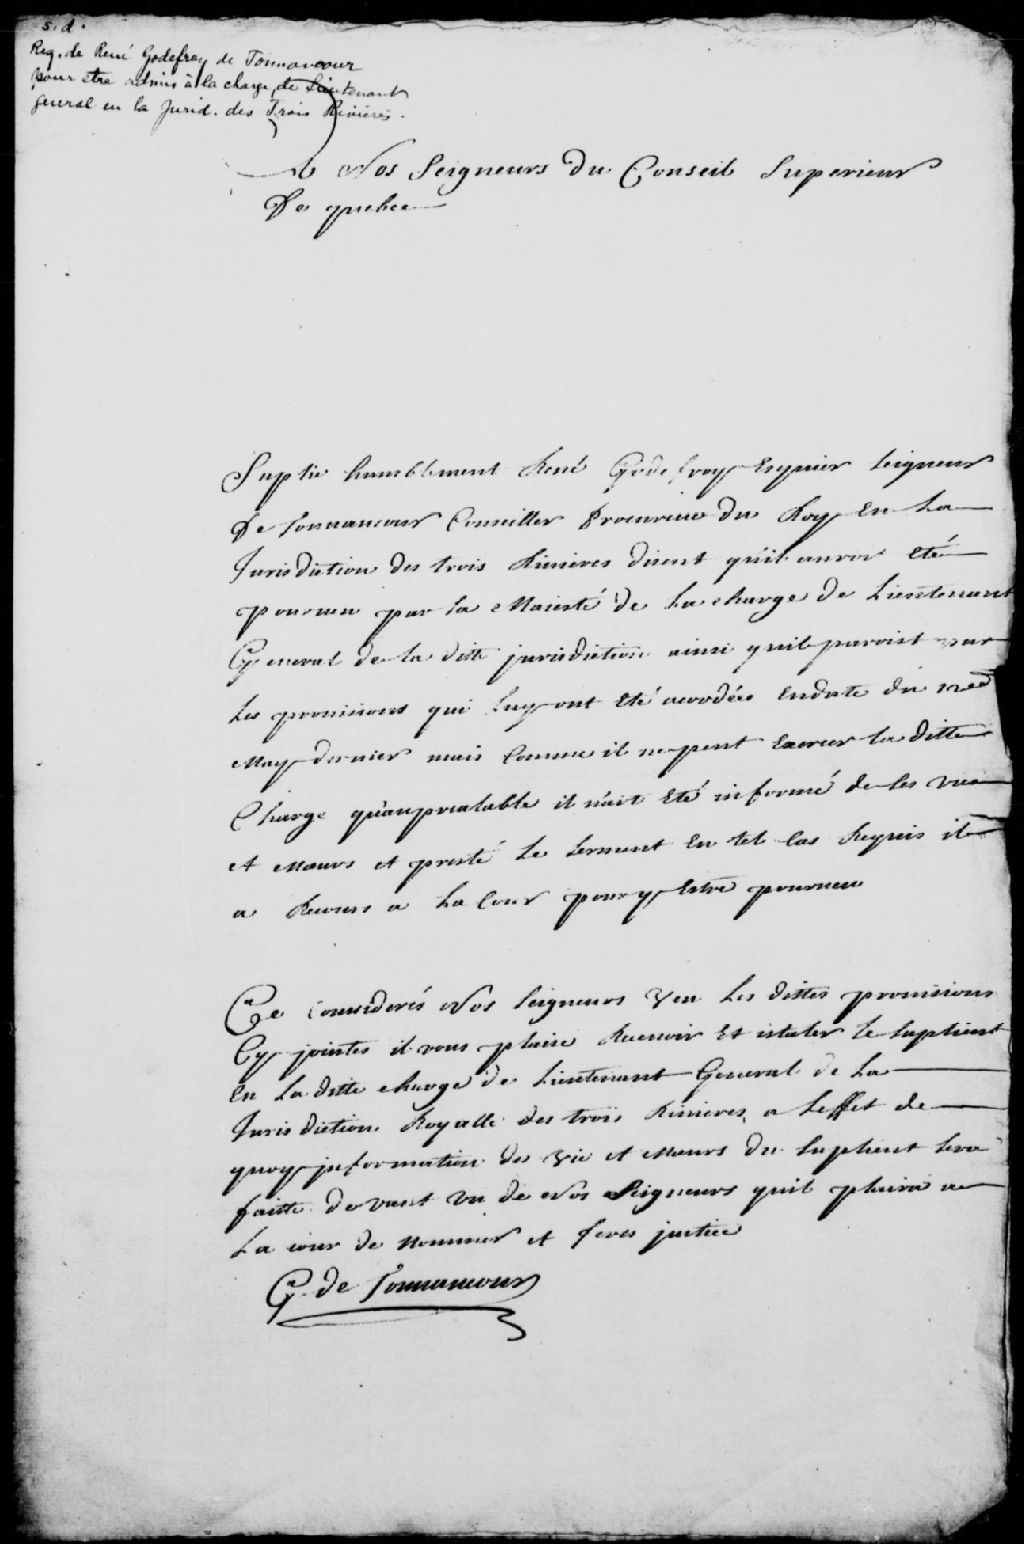 s.d.
Req. de René Godefroy de Tonnancour
pour être admis à la charge de Lieutenant
general en la Jurid. des Trois Rivières.
A Nos Seigneurs Du Conseil Superieur
De quebec
Suplie humblement René Godefroy Esquier seigneur
De Tonnancour Conseiller Procureur du Roy En La
Jurisdiction des trois Rivieres disent qu'il auroit Eté
pourveu par sa Maiesté de La charge de Lieutenant
General de la ditte jurisdiction ainsi quil paroist par
Les provisions qui luy ont Eté accordées Endate du
May dernier mais Comme il ne peut Exercer la ditte
Charge qu'auprealable il n'ait Eté informé de ses vie
et Mœurs et presté Le serment En tel Cas Requis il
a Recours a La Cour pour y Estre pourveu
Ce Considerés Nos Seigneurs Veu Les dittes provisions
Cy jointes il vous plaise Recevoir Et istaler Le Supliant
En La ditte charge de Lieutenant General de La
Jurisdiction Royalle des trois Rivieres, a Leffet de
quoy information des vie et Mœurs du Supliant sera
faitte devant Un de Nos Seigneurs quil plaira a
La cour de Nommer et feres justice
G. de Tonnancour